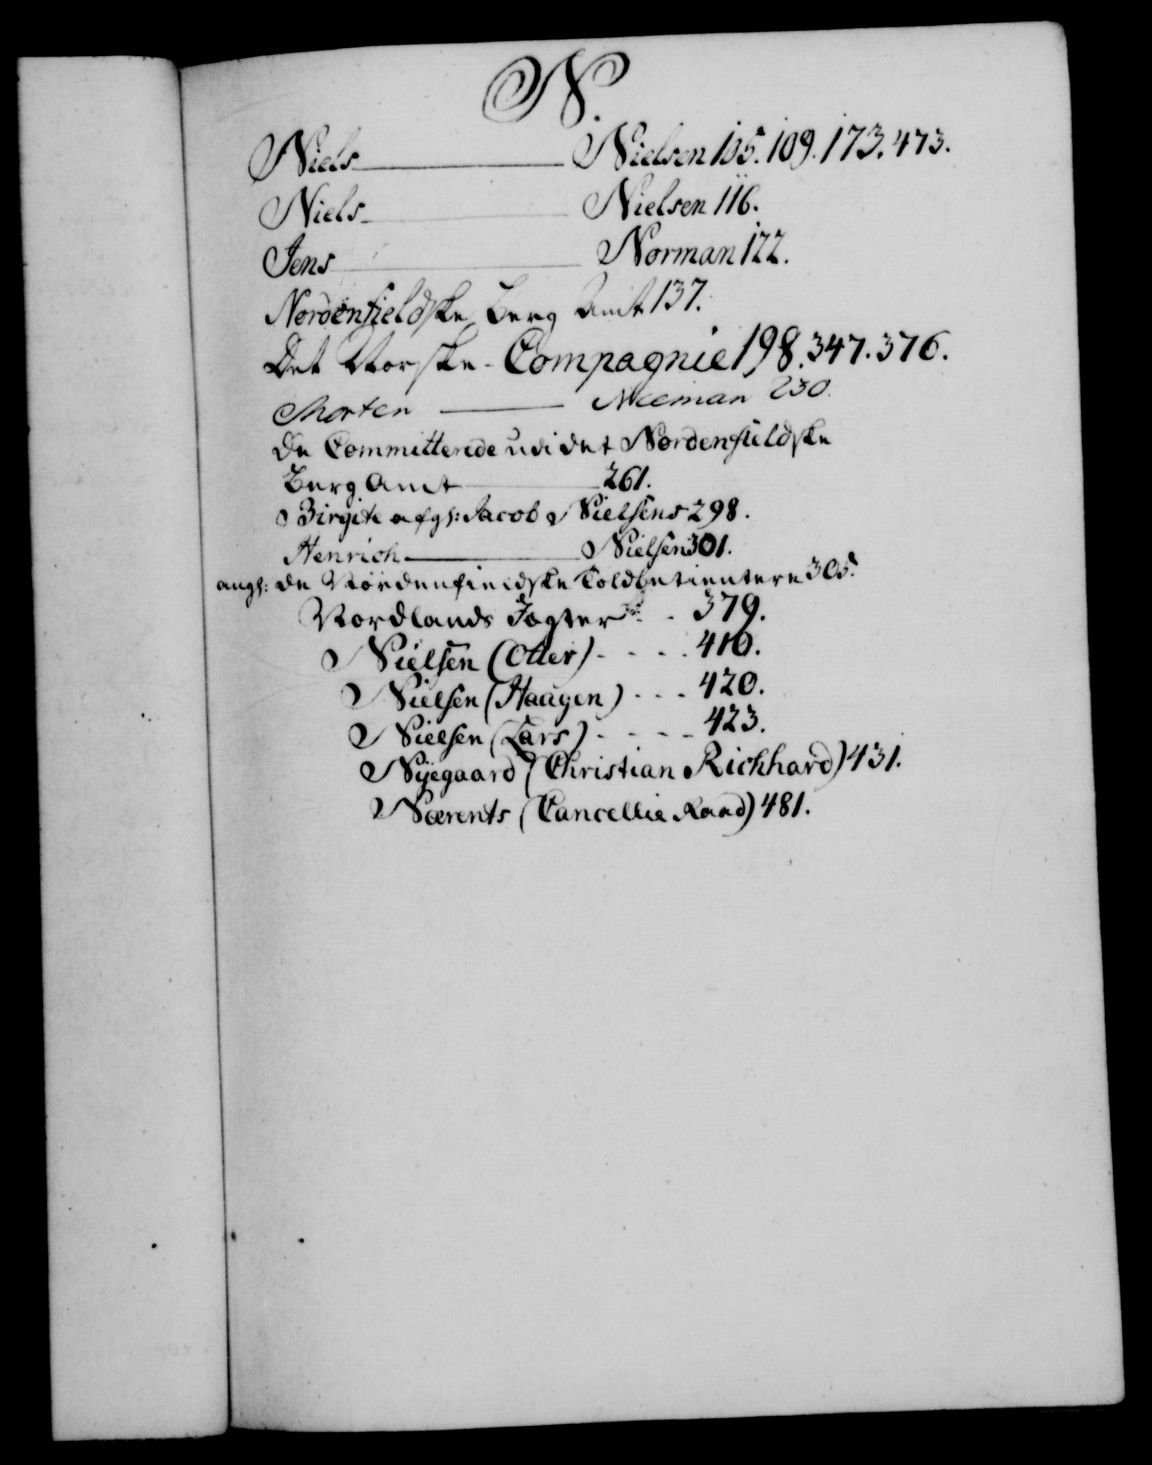 N.
Niels Nielsen 105. 109. 173. 473.
Niels Nielsen 116.
Jens Norman 122.
Nordenfieldske Berg Amt 137.
Det Norske Compagnie 198. 347. 376.
Morten Neeman 230.
De Committerede udi det Nordenfieldske
Berg Amt 261.
Birgite afgl: Jacob Nielsens 298.
Henrich Nielsen 301.
angl: de Nordenfieldske Toldbetientere 305.
Nordlands Jagter 379.
Nielsen (Otter) - - - - 410.
Nielsen (Haagen) - - - 420.
Nielsen (Lars) - - - - 423.
Nyegaard (Christian Richhard) 431.
Nærents (Cancellie Raad) 481.